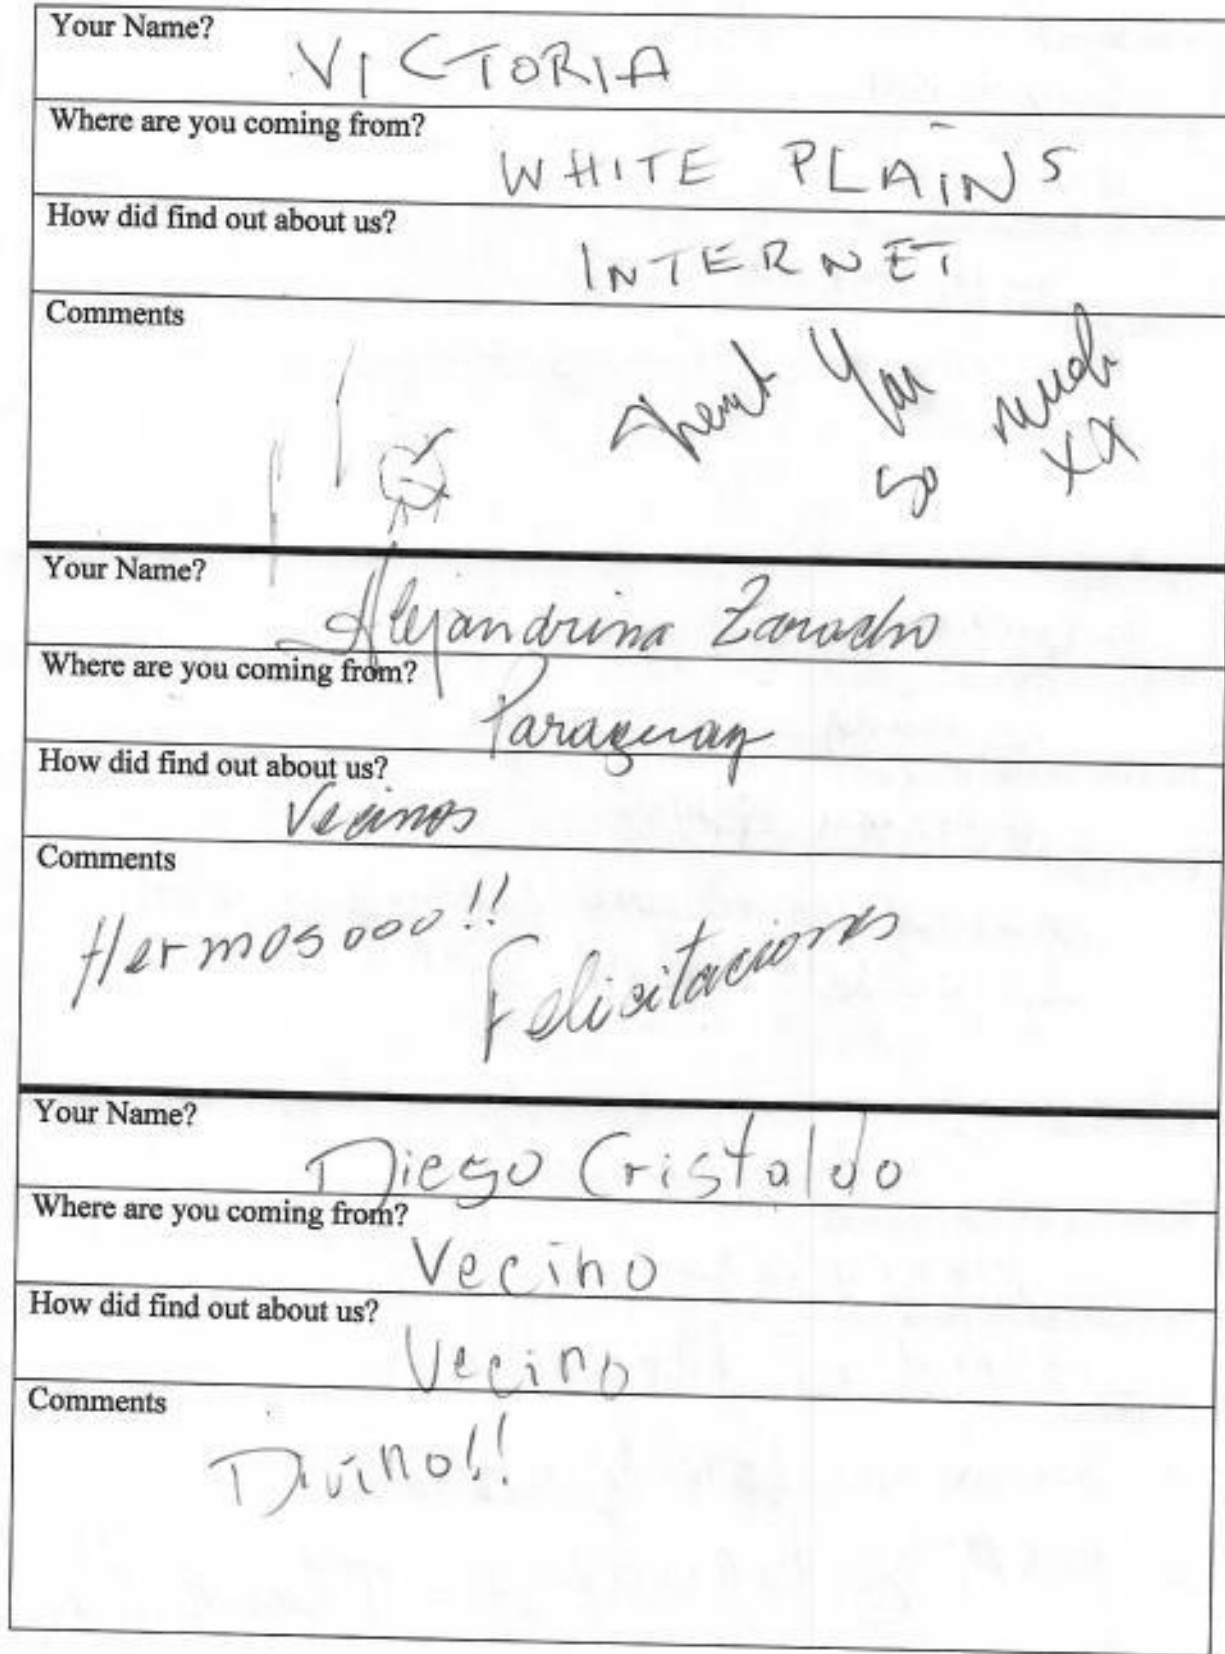 Your Name?
VICTORIA
Where are you coming from?
WHITE PLAINS
How did find out about us?
INTERNET
Comments
You much
so xx
Your Name?
Alejandrina Zaracho
Where are you coming from?
Paraguay
How did find out about us?
Vecinos
Comments
Hermosooo!!
Felicitaciones
Your Name?
Diego Cristaldo
Where are you coming from?
Vecino
How did find out about us?
Vecino
Comments
Divino!!